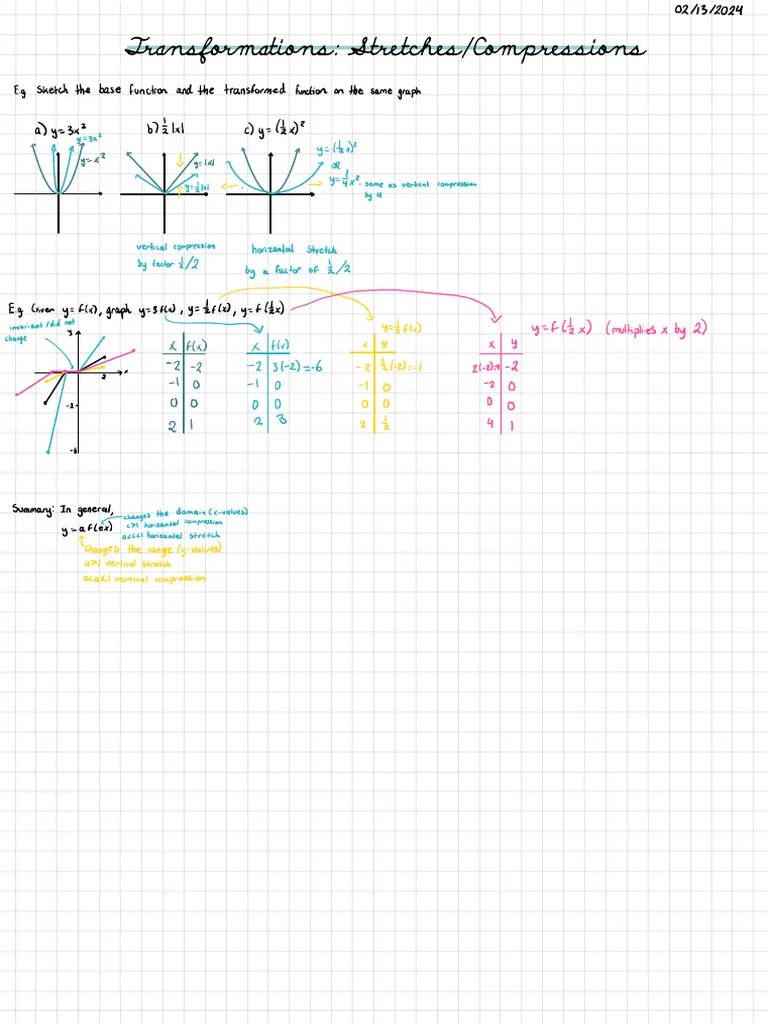 02/13/2024
Transformations: Stretches/Compressions
E.g Sketch the base function and the transformed function on the same graph
a) y=3x²
y=3x²
y=x²
b) ½|x|
y=|x|
y=½|x|
c) y=(½x)²
y=(½x)²
or
y=¼x² - same as vertical compression
by 4
vertical compression
by factor ½/2
horizontal stretch
by a factor of ½/2
E.g Given y=f(x), graph y=3f(x), y=½f(x), y=f(½x)
invariant/did not
change
y
x
2
-2
-6
x f(x)
-2 -2
-1 0
0 0
2 1
x f(x)
-2 3(-2)=-6
-1 0
0 0
2 3
y=½f(x)
x y
-2 ½(-2)=-1
-1 0
0 0
2 ½
y=f(½x) (multiplies x by 2)
x y
2(-2)=-4 -2
-2 0
0 0
4 1
Summary: In general,
changes the domain (x-values)
c>1 horizontal compression
0<c<1 horizontal stretch
y=af(cx)
changes the range (y-values)
a>1 vertical stretch
0<a<1 vertical compression